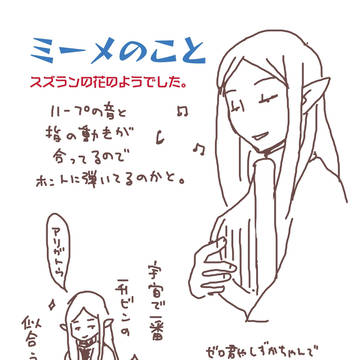 ミーメのこと
スズランの花のようでした。
ハープの音と
指の動きが
合ってるので
ホントに弾いてるのかと。
アリガトウ
宇宙で一番
一升ビンの
似合う
ゼロ君やしずかちゃんで